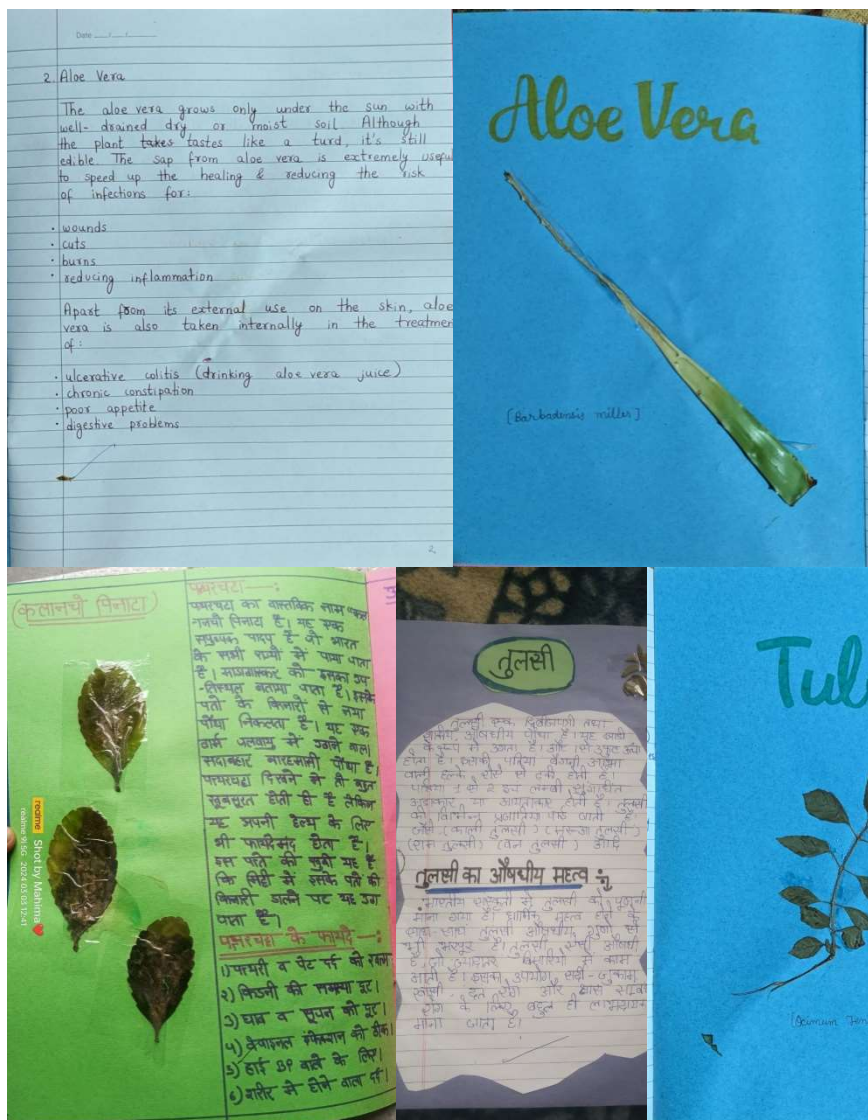 Date ___/___/___
2. Aloe Vera
The aloe vera grows only under the sun with
well-drained dry or moist soil Although
the plant takes tastes like a turd, it's still
edible. The sap from aloe vera is extremely useful
to speed up the healing & reducing the risk
of infections for:
· wounds
· cuts
· burns
· reducing inflammation
Apart from its external use on the skin, aloe
vera is also taken internally in the treatmen
of:
· ulcerative colitis (drinking aloe vera juice)
· chronic constipation
· poor appetite
· digestive problems
2
Aloe Vera
[Barbadensis miller]
(कलानचो पिनाटा)
पत्थरचटा का वास्तविक नाम
पिनाटा है। यह एक
सपुष्पक पादप है जो भारत
के सभी राज्यों में पाया जाता
है।
पत्तो के किनारों से नया
पौधा निकलता है। यह एक
सदाबहार बारहमासी पौधा है।
पत्थरचटा दिखने में तो बहुत
खूबसूरत होती ही है लेकिन
यह अपनी हेल्थ के लिए
भी फायदेमंद होता है।
इस पत्ते की खूबी यह है
कि मिट्टी में इसके पत्ते की
किनारी डालने पर यह उग
जाता है।
पत्थरचटा के फायदे —:
1) पथरी व पेट दर्द
2) किडनी की समस्या दूर।
3) घाव व सूजन को दूर।
4) इंफेक्शन को ठीक।
5) हाई BP वाले के लिए।
6) शरीर में होने वाला दर्द।
realme Shot by Mahima
realme 9i 5G 2024.03.03 12:41
तुलसी
तुलसी एक तथा
औषधीय पौधा है। यह झाड़ी
के रूप में उगता है और
होता है। इसकी पत्तियां बैंगनी
वाली हल्के रोएं से ढकी होती है।
पत्तियां 1 से 2 इंच लम्बी सुगंधित
अंडाकार या आयताकार होती है। तुलसी
की विभिन्न प्रजातियां पाई जाती
(काली तुलसी)
(राम तुलसी) (वन तुलसी) आदि
तुलसी का औषधीय महत्व
भारतीय संस्कृति में तुलसी को पूजनीय
माना गया है। धार्मिक महत्व होने के
साथ-साथ तुलसी औषधीय गुणों से
भी भरपूर है। तुलसी ऐसी औषधी
है जो ज्यादातर बिमारियों में काम
आती है। इसका उपयोग सर्दी-जुकाम
खांसी दंत रोग और श्वास सम्बंधी
रोग के लिए बहुत ही लाभदायक
माना जाता है।
Tul
[Ocimum Ten